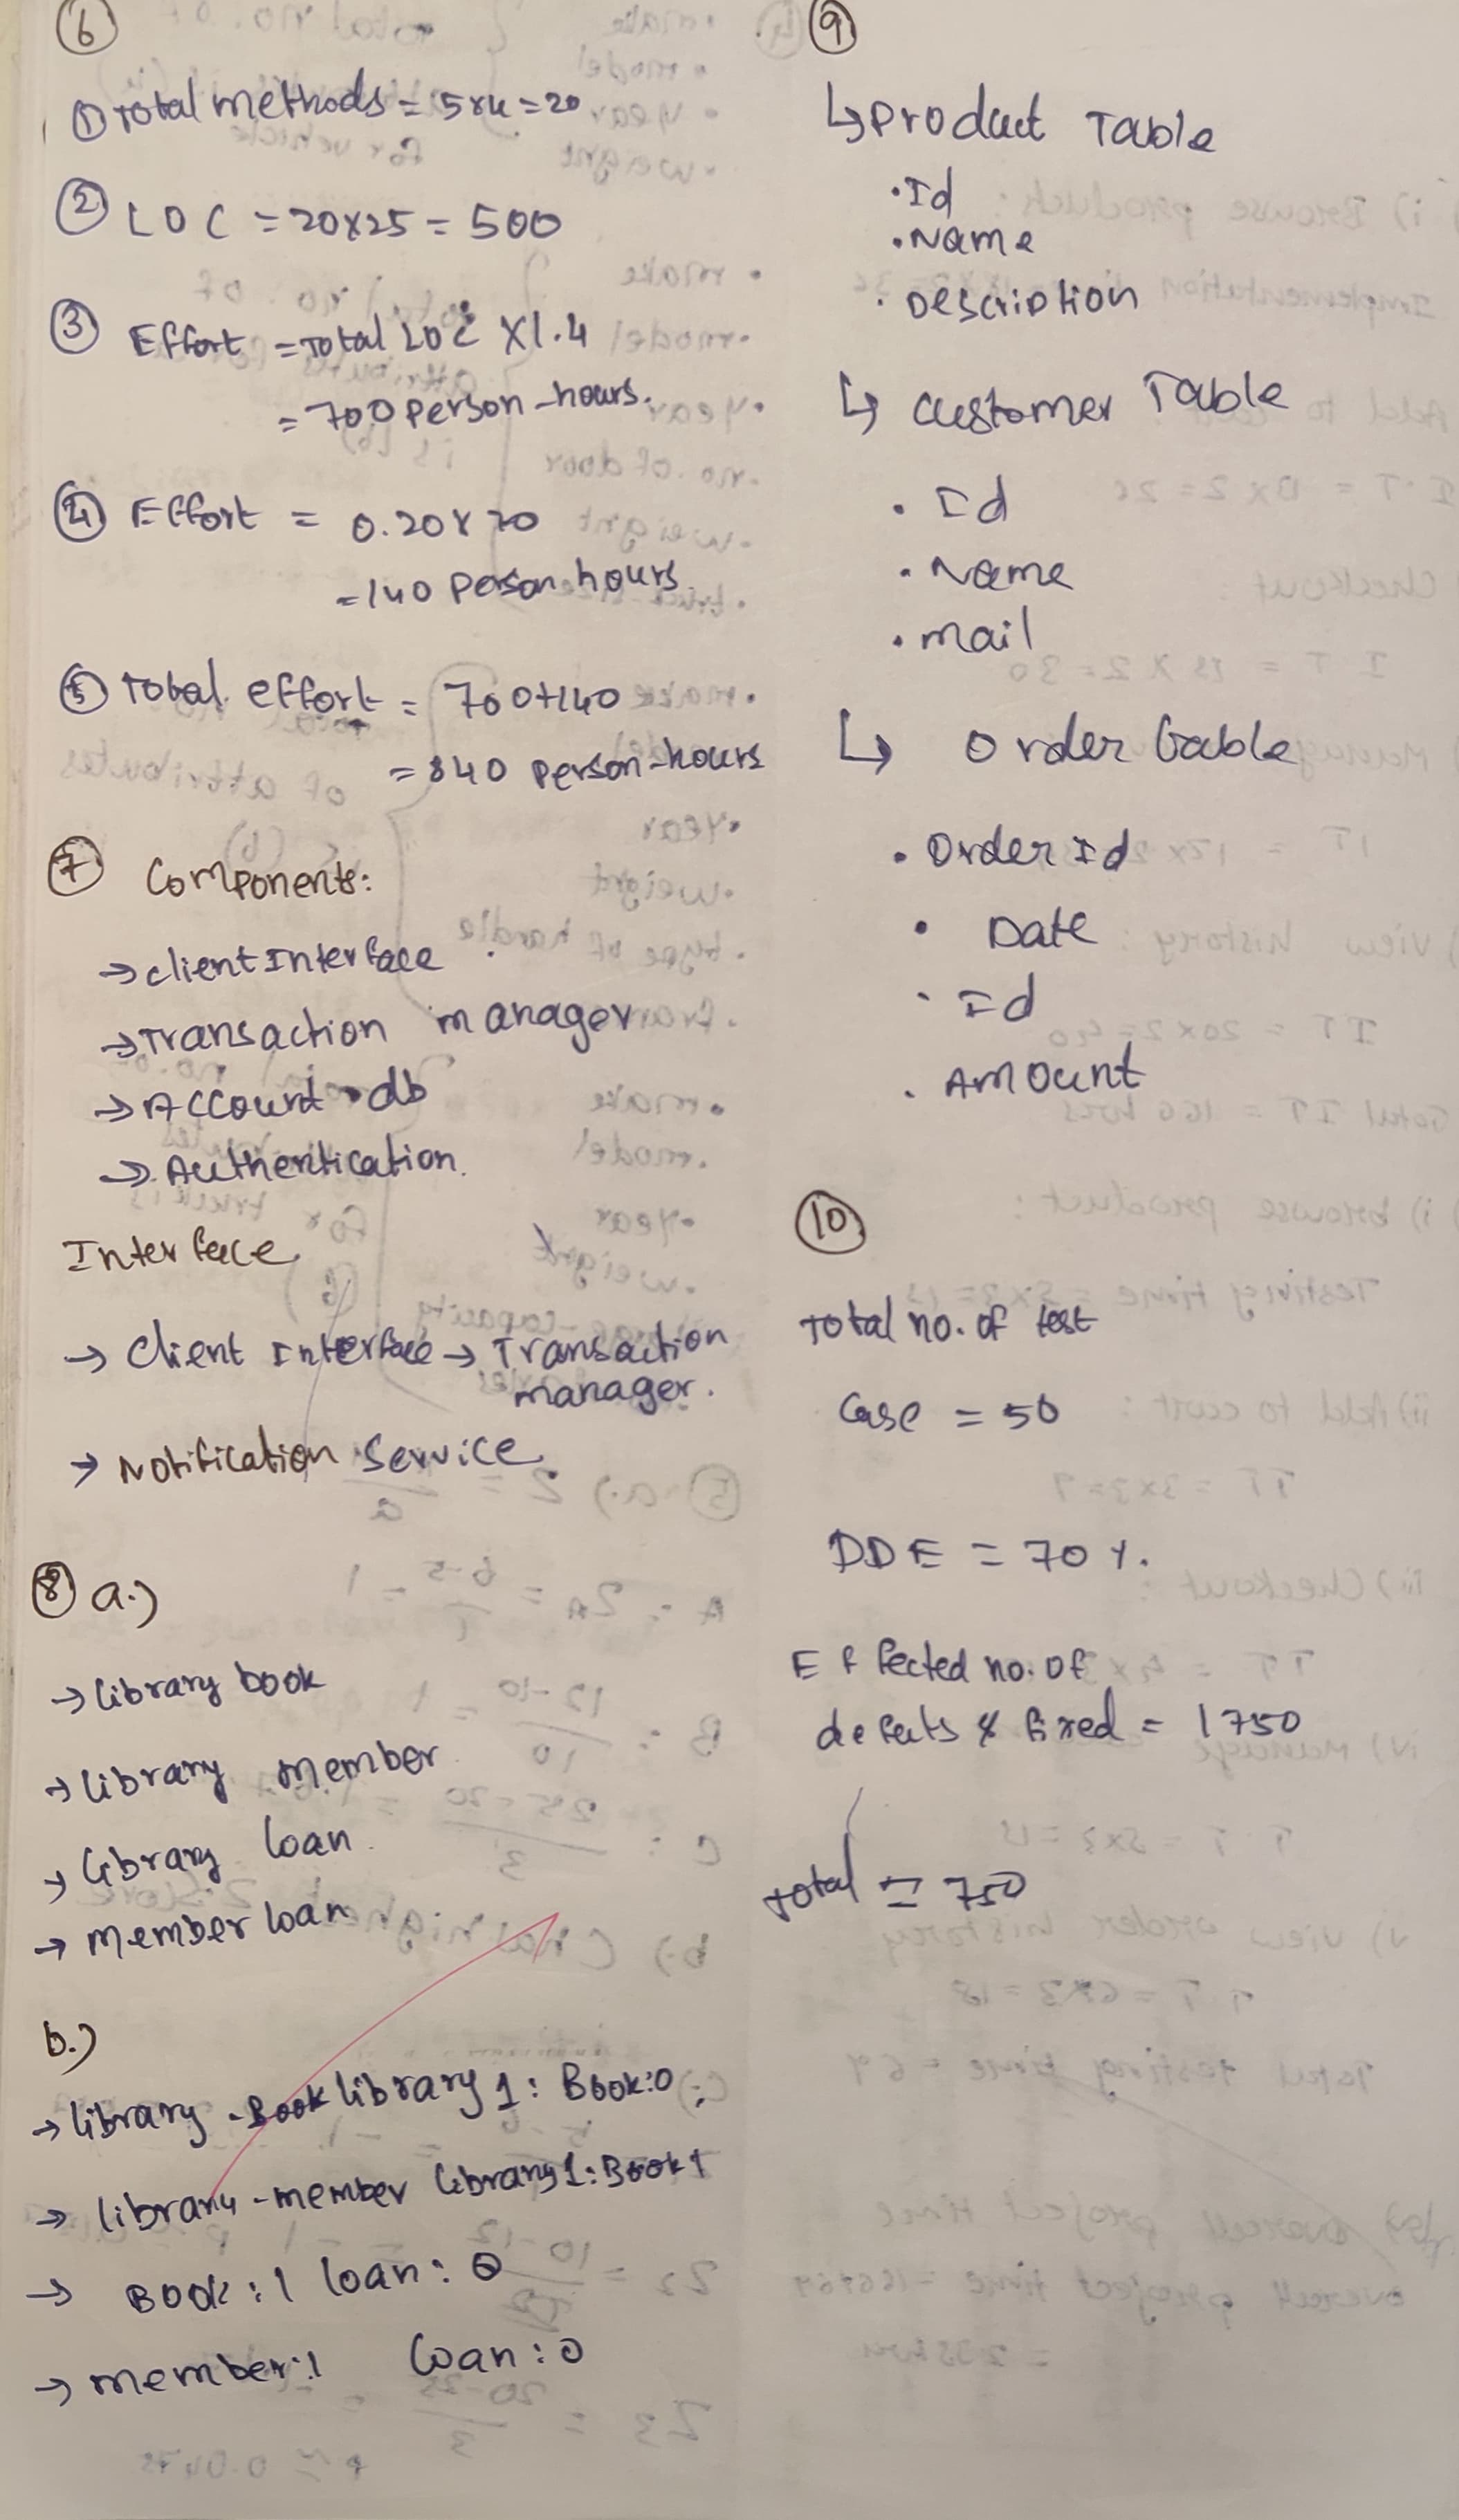 6
① Total methods = 5x4 = 20
② LOC = 20x25 = 500
③ Effort = Total LOC X1.4
= 700 Person-hours.
④ Effort = 0.20x70
= 140 Person hours
⑤ Total effort = 700+140
= 840 person-hours
7 Components:
→ client Interface
→ Transaction manager
→ Account db
→ Authentication.
Interface
→ Client Interface → Transaction
manager.
→ Notification Service
8 a.)
→ library book
→ library member
→ library loan
→ member loan
b.)
→ library - Book library 1: Book:0
→ library - member library 1: Book 1
→ Book:1 loan: 0
→ member:1 loan:0
9
↳ Product Table
• Id
• Name
• Description
↳ customer Table
• Id
• Name
• mail
↳ order table
• Order Id
• Date
• Id
• Amount
10
Total no. of test
Case = 50
DDE = 70 %.
Effected no. of
defects & fixed = 1750
total = 750